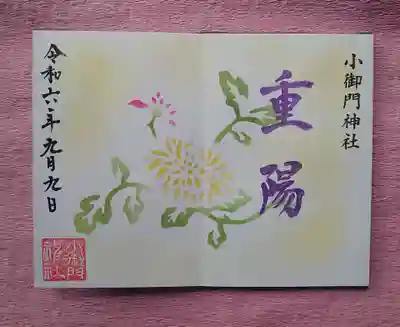 小御門神社
重陽
令和六年九月九日
小御門神社